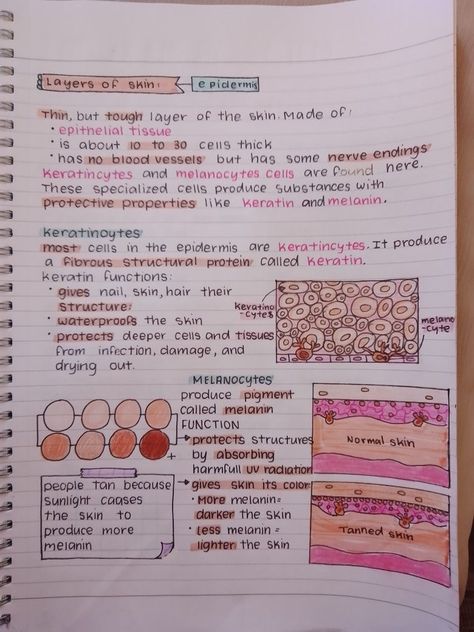 Layers of skin: epidermis
Thin, but tough layer of the skin. Made of:
• epithelial tissue
• is about 10 to 30 cells thick
• has no blood vessels but has some nerve endings
Keratincytes and melanocytes cells are found here.
These specialized cells produce substances with
protective properties like keratin and melanin.
Keratinoytes
most cells in the epidermis are keratincytes. It produce
a fibrous structural protein called keratin.
Keratin functions:
• gives nail, skin, hair their
structure.
• waterproofs the skin
• protects deeper cells and tissues
from infection, damage, and
drying out.
keratino
-cytes
melano
-cyte
MELANOCYTES
produce pigment
called melanin
FUNCTION
→ protects structures
by absorbing
harmfull UV radiation
→ gives skin its color
• More melanin=
darker the skin
• Less melanin =
lighter the skin
+
people tan because
sunlight causes
the skin to
produce more
melanin
Normal skin
Tanned skin